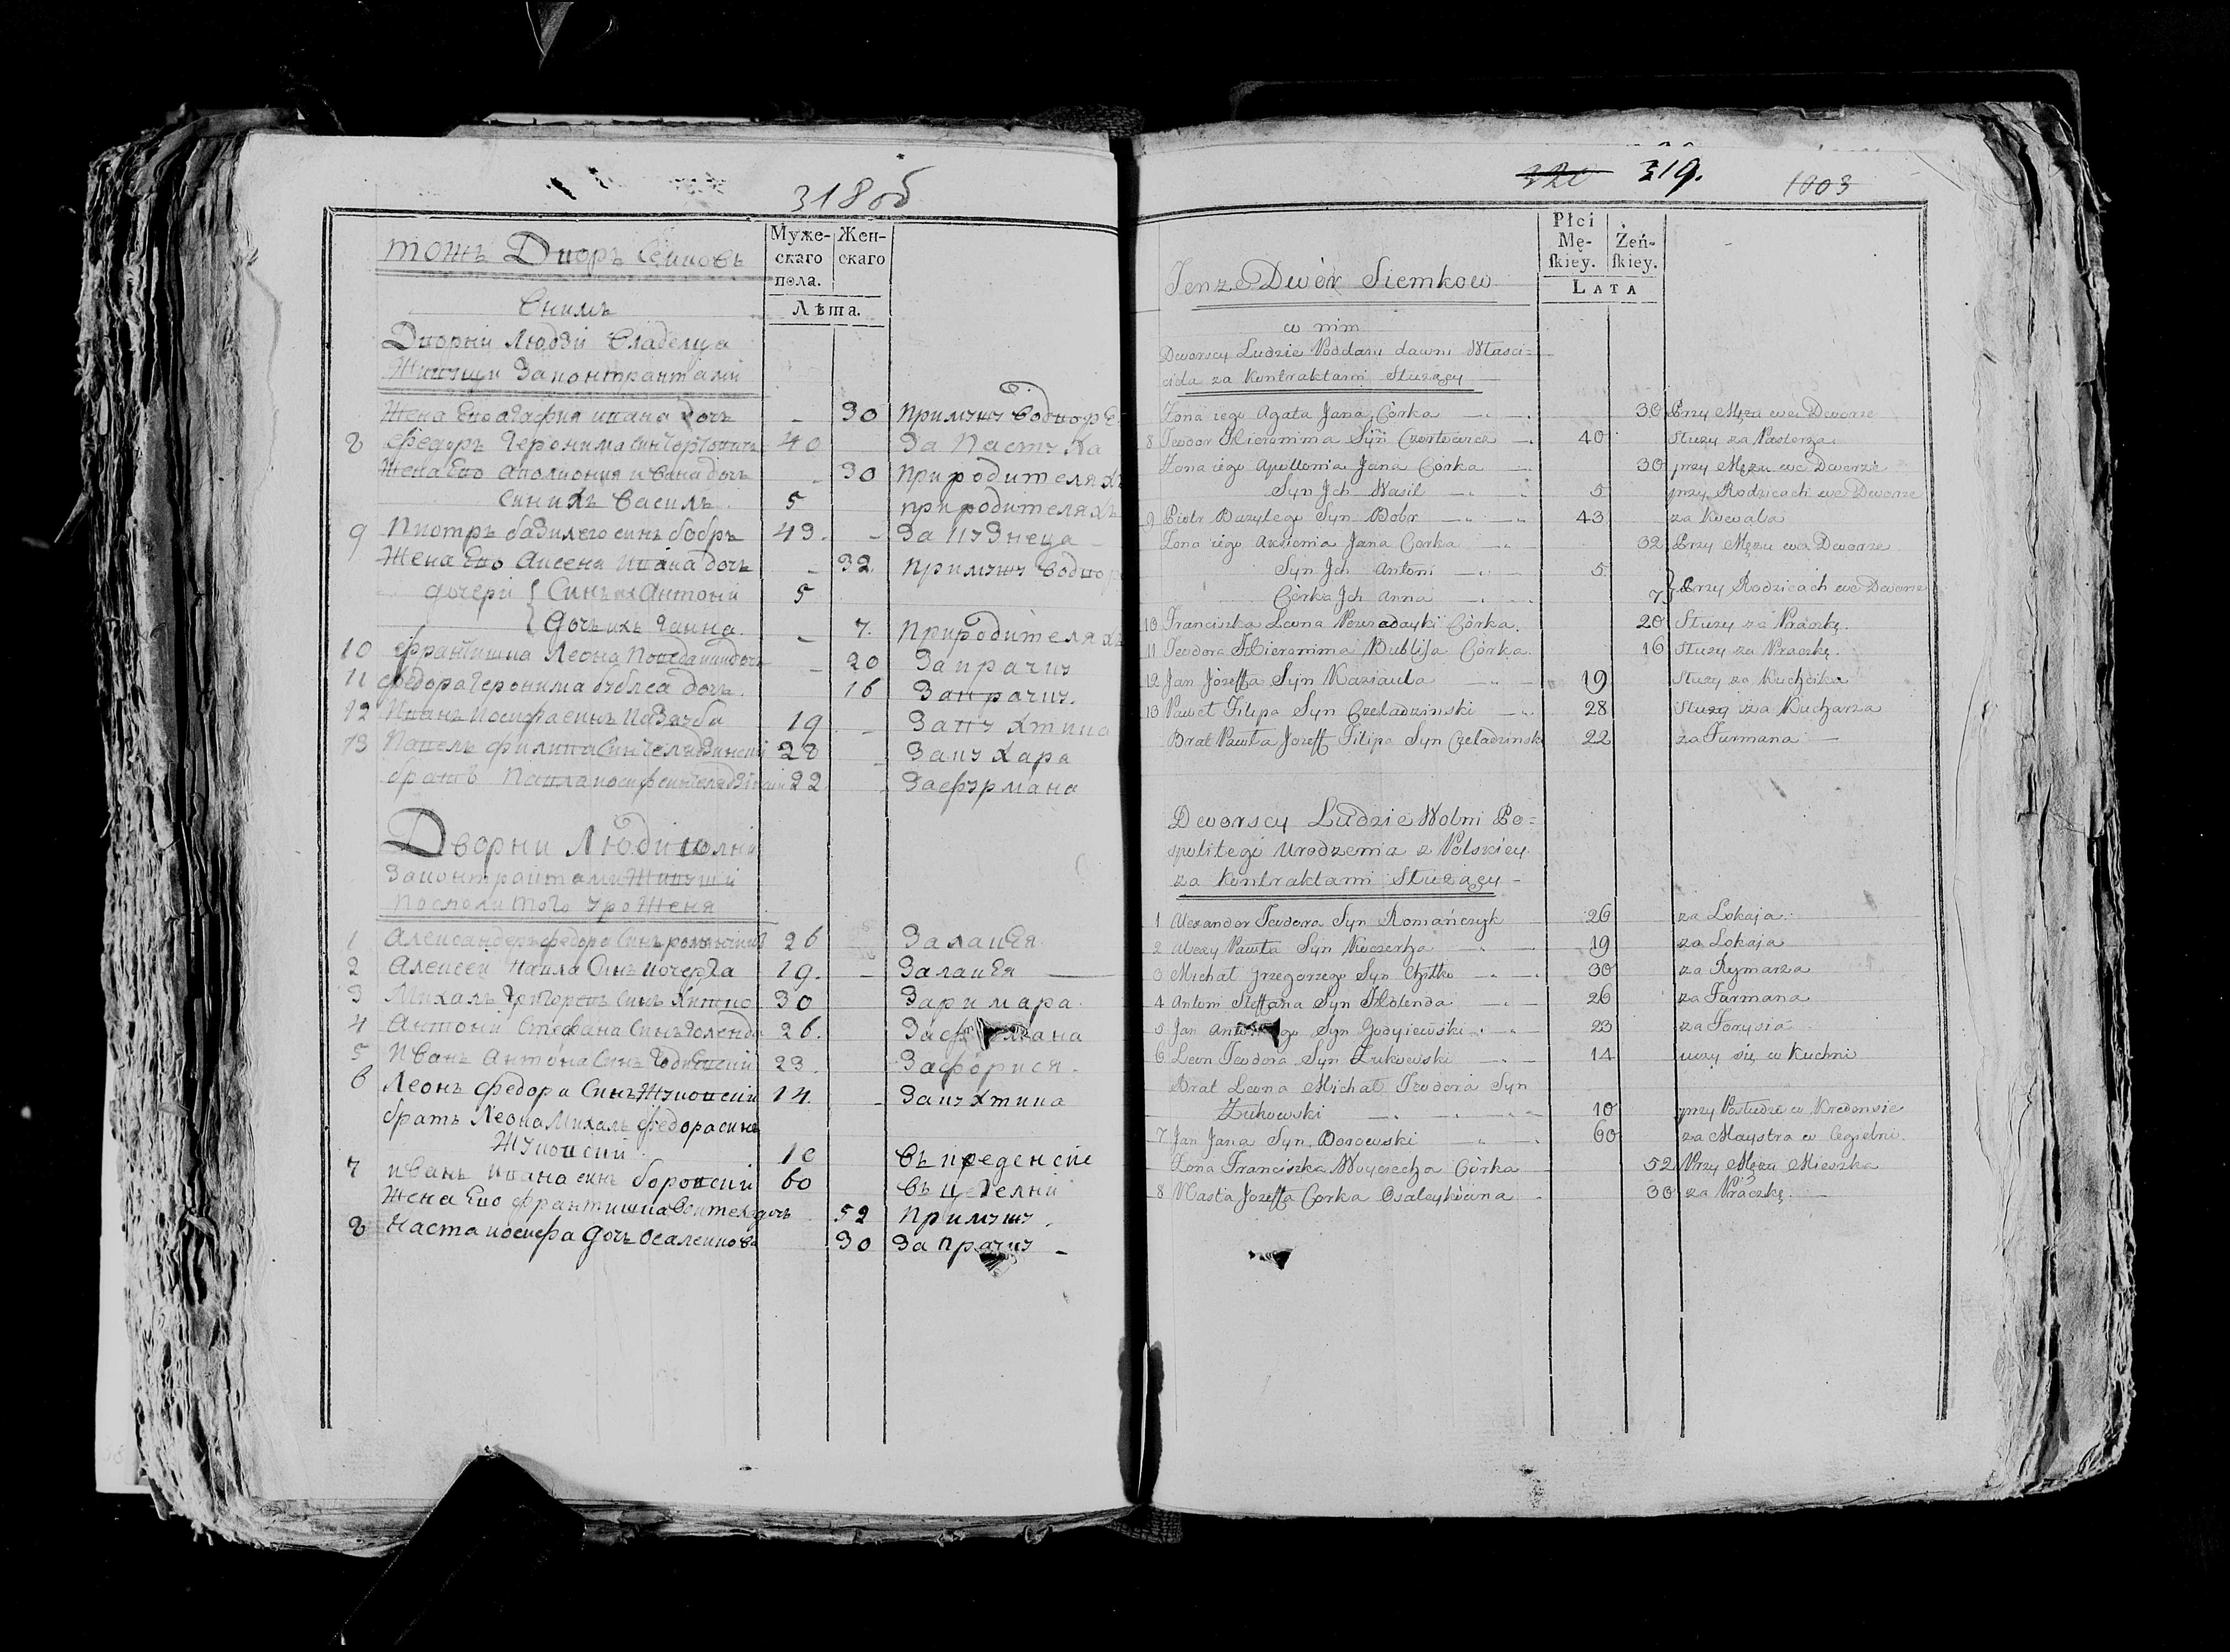 318 об
Муже-
скаго
пола.
Жен-
скаго
Лѣта.
тожъ Дворъ Семковъ
Снимъ
Дворни Людзи Владелца
Живущи Законтрактами
Жена Его агафия ивана дочъ - 30 Примужу Водворе
8 Федоръ Геронима Син 40 За Пастуха
Жена Его Аполиония ивана дочъ - 30 При родителяхъ
Синихъ Василь 5 при родителяхъ
9 Пиотръ базилего синъ бобръ 43 - За кузнеца
Жена Его Аксеня Ивана дочъ - 32 Примужу Водвор
дочери { Синъ их Антони 5
Дочъ ихъ Ганна - 7 При родителяхъ
10 Францишка Леона дочъ - 20 За прачку
11 Федора Геронима бублеа дочъ 16 За прачку
12 Иванъ Иосифа синъ Казауба 19 - За кухтика
13 Павелъ филипа Син Челядзински 28 - За кухара
братъ Павла иосиф син Челядзински 22 За фурмана
Дворни Люди волни
Законтрактами Живущи
Посполитого урожения
1 Александеръ федора Синъ романчикъ 26 За лакея
2 Алексей Павла Синъ кочерга 19. - За лакея
3 Михалъ Григорея Синъ Хитко 30 За римара
4 Антони Стефана Синъ Голенда 26. За фурмана
5 Иванъ Антона Синъ 23 За фориса
6 Леонъ федора Синъ Жуковски 14 - За кухтика
братъ Леона Михалъ федора синъ
Жуковски 10 Въ креденсие
7 иванъ ивана синъ боровски 60 Въ цегелни
Жена Его францишка Войтеха дочъ 52 Примужу
8 Наста иосифа дочъ 30 За прачку
320 319.
1003
Płci
Mę-
ſkiey.
Żeń-
ſkiey.
LATA
Tenże Dwór Siemkow
w nim
Dworscy Ludzie Poddani dawni Własci=
ciela za Kontraktami Służący
Zona iego Agata Jana Córka 30 Przy Mężu we Dworze
8 Teodor Hieronima Syn 40 służy za Pasterza
Zona iego Apollonia Jana Córka 30 przy Mężu we Dworze
Syn Jch Wasil 5 przy Rodzicach we Dworze
9 Piotr Bazylego Syn Bobr 43 za Kowala
Zona iego Axienia Jana Corka 32 Przy Mężu we Dworze
Syn Jch Antoni 5
Córka Jch Anna 7 } Przy Rodzicach we Dworze
10 Franciszka Leona Córka 20 Służy za Praczkę.
11 Teodora Hieronima Córka 16 służy za Praczkę.
12 Jan Jozeffa Syn Kaziauba 19 służy za Kuchcika
13 Paweł Filipa Syn Czeladzinski 28 służy za Kucharza
Brat Pawła Jozeff Filipa Syn Czeladzinski 22 za Furmana
Dworscy Ludzie Wolni Po=
spolitego Urodzenia z Polskiey
za Kontraktami Służący
1 Alexander Teodora Syn Romańczyk 26 za Lokaja
2 Alexy Pawła Syn Koczerha 19 za Lokaja
3 Michał Grzegorzego Syn Chytko 30 za Rymarza
4 Antoni Steffana Syn Holenda 26 za Furmana
5 Jan Syn 23 za Forysia
6 Leon Teodora Syn Żukowski 14 uczy się w Kuchni
Brat Leona Michał Teodora Syn
Żukowski 10 przy Posłudze w Kredensie
7 Jan Jana Syn Borowski 60 za Maystra w Cegielni
Zona Franciszka Woyciecha Córka 52 Przy Mężu Mieszka
8 Nasta Jozeffa Corka 30 za Praczkę.